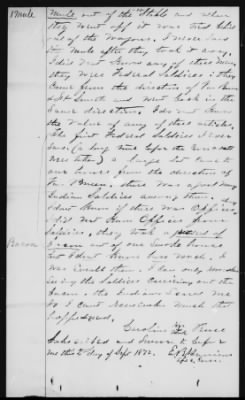 1 Mule
Mule out of the Stable and when
they went off it was tied behind
one of the Wagons. I never saw
the mule after they took it away.
I didn't know any of these men
they were Federal Soldiers; they
came from the direction of
Ft Smith and went back in the
same direction. I do not know
the value of any of these articles.
The first Federal Soldiers I ever
saw (a long time before the
were taken) a large lot came to
our house from the direction of
there was a good many
Indian Soldiers among them. I
don't know if there was Officers
I did not know Officers from
Soldiers, they took a quantity of
Bacon
Bacon out of our Smoke house
but I don't know how much. I
was small then. I saw only
the Soldiers carrying out the
Bacon. the Indians scared me
so I can't recollect much that
happened.
Caroline Pierce
Subscribed and Sworn to before
me this day of Sept 1872.